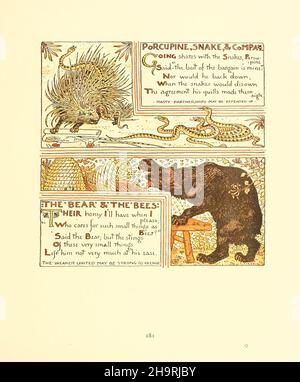 PORCUPINE, SNAKE, & COMPANY
GOING shares with the Snakes, Porcupine
Said "the best of the bargain is mine:"
Nor would he back down,
When the snakes would disown
The agreement his quills made them sign.
HASTY PARTNERSHIPS MAY BE REPENTED OF
THE BEAR & THE BEES:
"THEIR honey I'll have when I please;
Who cares for such small things as Bees?"
Said the Bear; but the stings
Of these very small things
Left him not very much at his ease.
THE WEAKEST UNITED MAY BE STRONG TO AVENGE
alamy
Image ID: 2H9RJBY
www.alamy.com